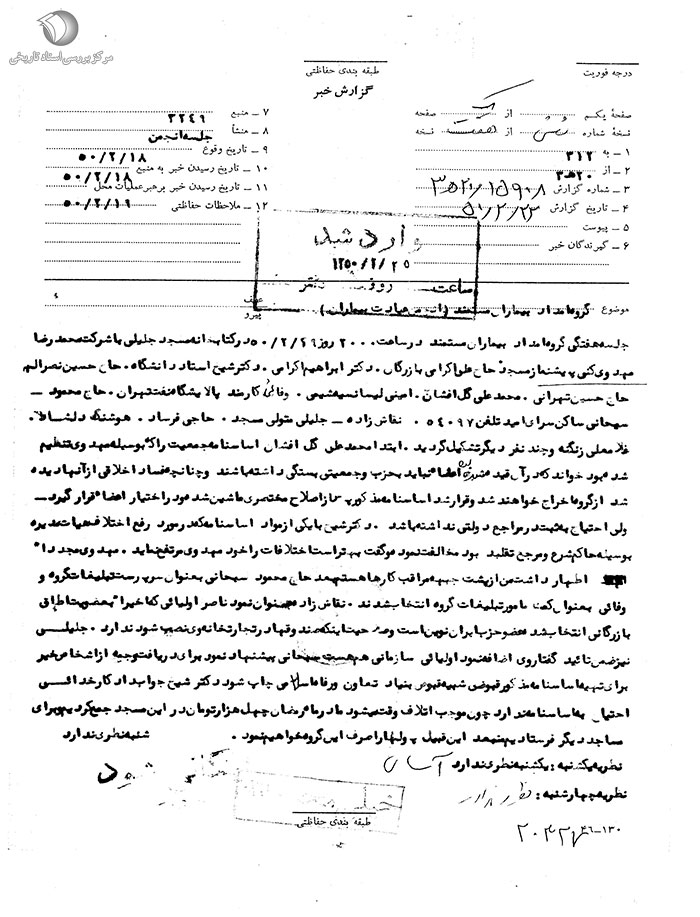 مرکز بررسی اسناد تاریخی
درجه فوریت
طبقه بندی حفاظتی
گزارش خبر
صفحهٔ یکم از یک صفحه
نسخهٔ شماره از هفت نسخه
۱ ــ به ۳۱۲
۲ ــ از ۲۰ هـ ۳
۳ ــ شماره گزارش
۴ ــ تاریخ گزارش ۵۰/۲/۲۳
۵ ــ پیوست
۶ ــ گیرندگان خبر
۷ ــ منبع ۳۲۴۹
۸ ــ منشأ جلسه انجمن
۹ ــ تاریخ وقوع ۵۰/۲/۱۸
۱۰ ــ تاریخ رسیدن خبر به منبع ۵۰/۲/۱۸
۱۱ ــ تاریخ رسیدن خبر برهبر عملیات محل ۵۰/۲/۱۹
۱۲ ــ ملاحظات حفاظتی
وارد شد
۱۳۵۰/۲/۲۵
ساعت روز دفتر
موضوع گروه امداد بیماران مستمند (انجمن عیادت بیماران)
عطف
پیرو
جلسه هفتگی گروه امداد بیماران مستمند در ساعت ۲۰۰۰ روز ۵۰/۲/۱۹ در کتابخانه مسجد جلیلی با شرکت محمد رضا
مهدوی کنی پیشنماز مسجد حاج علی اکرامی بازرگان ۰ دکتر ابراهیم اکرامی ۰ دکتر شیخ استاد دانشگاه ۰ حاج حسین نصراله
حاج حسین تهرانی ۰ محمد علی گل افشان ۰ امینی لیسانسیه شیمی ۰ وفائی کارمند پالایشگاه نفت تهران ۰ حاج محمود ــ
سبحانی ساکن سرای امید تلفن ۵۴۰۹۷ ۰ نقاش زاده ــ جلیلی متولی مسجد ۰ حاجی فرساد ۰ هوشنگ دلشاد
غلامعلی زنگنه و چند نفر دیگر تشکیل گردید ۰ ابتدا محمد علی گل افشان اساسنامه جمعیت را که بوسیله مهدوی تنظیم
شده بود خواند که در آن قید شده اعضاء نباید بحزب و جمعیتی بستگی داشته باشند و چنانچه فساد اخلاقی از آنها دیده
شد از گروه اخراج خواهند شد و قرار شد اساسنامه مذکور پس از اصلاح مختصری ماشین شده و در اختیار اعضاء قرار گیرد ــ
ولی احتیاج به ثبت در مراجع دولتی نداشته باشد ۰ دکتر شیخ با یکی از مواد اساسنامه که در مورد رفع اختلاف هیات مدیره
بوسیله حاکم شرع و مرجع تقلید بود مخالفت نمود و گفت بهتر است اختلافات را خود مهدوی مرتفع نماید ۰ مهدوی مجددا"
اظهار داشت من از پشت جبهه مراقب کارها هستم بعد حاج محمود سبحانی بعنوان سرپرست تبلیغات گروه و
وفائی بعنوان کمک مامور تبلیغات گروه انتخاب شدند ۰ نقاش زاده عنوان نمود ناصر اولیائی که اخیرا" بعضویت اطاق
بازرگانی انتخاب شده عضو حزب ایران نوین است و صحت اینکه صندوقها در تجارتخانه وی نصب شود ندارد ۰ جلیلی ــ
نیز ضمن تائید گفتار وی اضافه نمود اولیائی سازمانی هست سبحانی پیشنهاد نمود برای دریافت وجه از اشخاص خیر
برای تهیه اساسنامه مذکور قبوضی شبیه قبوض بنیاد تعاون و رفاه اسلامی چاپ شود دکتر شیخ جواب داد کار خدائی
احتیاج به اساسنامه ندارد چون موجب اتلاف وقت میشود ما در ماه رمضان چهل هزار تومان در این مسجد جمع کردیم و برای
مساجد دیگر فرستادیم بعد این قبیل پولها را صرف این گروه خواهیم نمود ۰ شنبه نظری ندارد
نظریه یکشنبه : یکشنبه نظری ندارد آسای
نظریه چهارشنبه : نظری ندارد
طبقه بندی حفاظتی
۴۶ــ۱۳۰